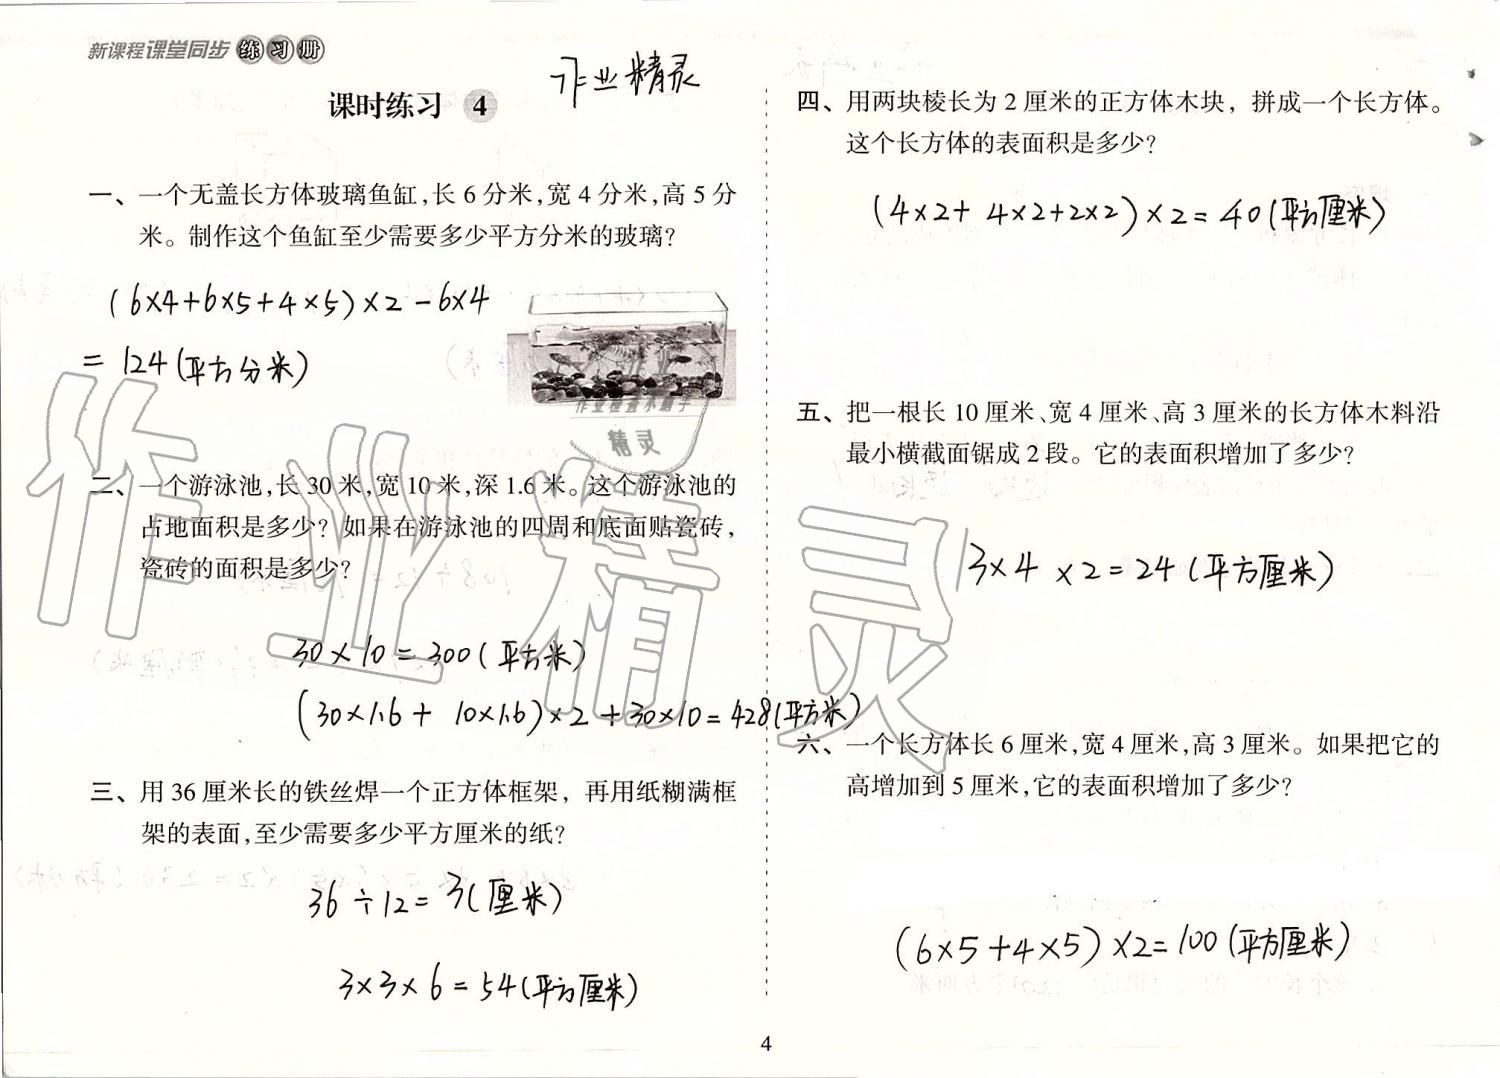 新课程课堂同步练习册
作业精灵
课时练习 4
一、一个无盖长方体玻璃鱼缸,长 6 分米,宽 4 分米,高 5 分
米。制作这个鱼缸至少需要多少平方分米的玻璃?
(6×4+6×5+4×5)×2-6×4
= 124(平方分米)
作业检查小助手
精灵
二、一个游泳池,长 30 米,宽 10 米,深 1.6 米。这个游泳池的
占地面积是多少? 如果在游泳池的四周和底面贴瓷砖,
瓷砖的面积是多少?
30×10=300(平方米)
(30×1.6+ 10×1.6)×2+30×10=428(平方米)
三、用 36 厘米长的铁丝焊一个正方体框架, 再用纸糊满框
架的表面,至少需要多少平方厘米的纸?
36÷12=3(厘米)
3×3×6=54(平方厘米)
四、用两块棱长为 2 厘米的正方体木块, 拼成一个长方体。
这个长方体的表面积是多少?
(4×2+ 4×2+2×2)×2=40(平方厘米)
五、把一根长 10 厘米、宽 4 厘米、高 3 厘米的长方体木料沿
最小横截面锯成 2 段。它的表面积增加了多少?
3×4 ×2=24(平方厘米)
六、一个长方体长 6 厘米,宽 4 厘米,高 3 厘米。如果把它的
高增加到 5 厘米,它的表面积增加了多少?
(6×5+4×5)×2=100(平方厘米)
4
作业精灵